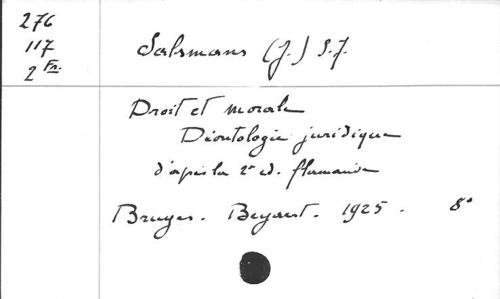 276
117
2 Fr.
Salsmans (J.) S.J.
Droit et morale
Déontologie juridique
d'après la 2e ed. flamande
Bruges. Beyaert. 1925. 8°